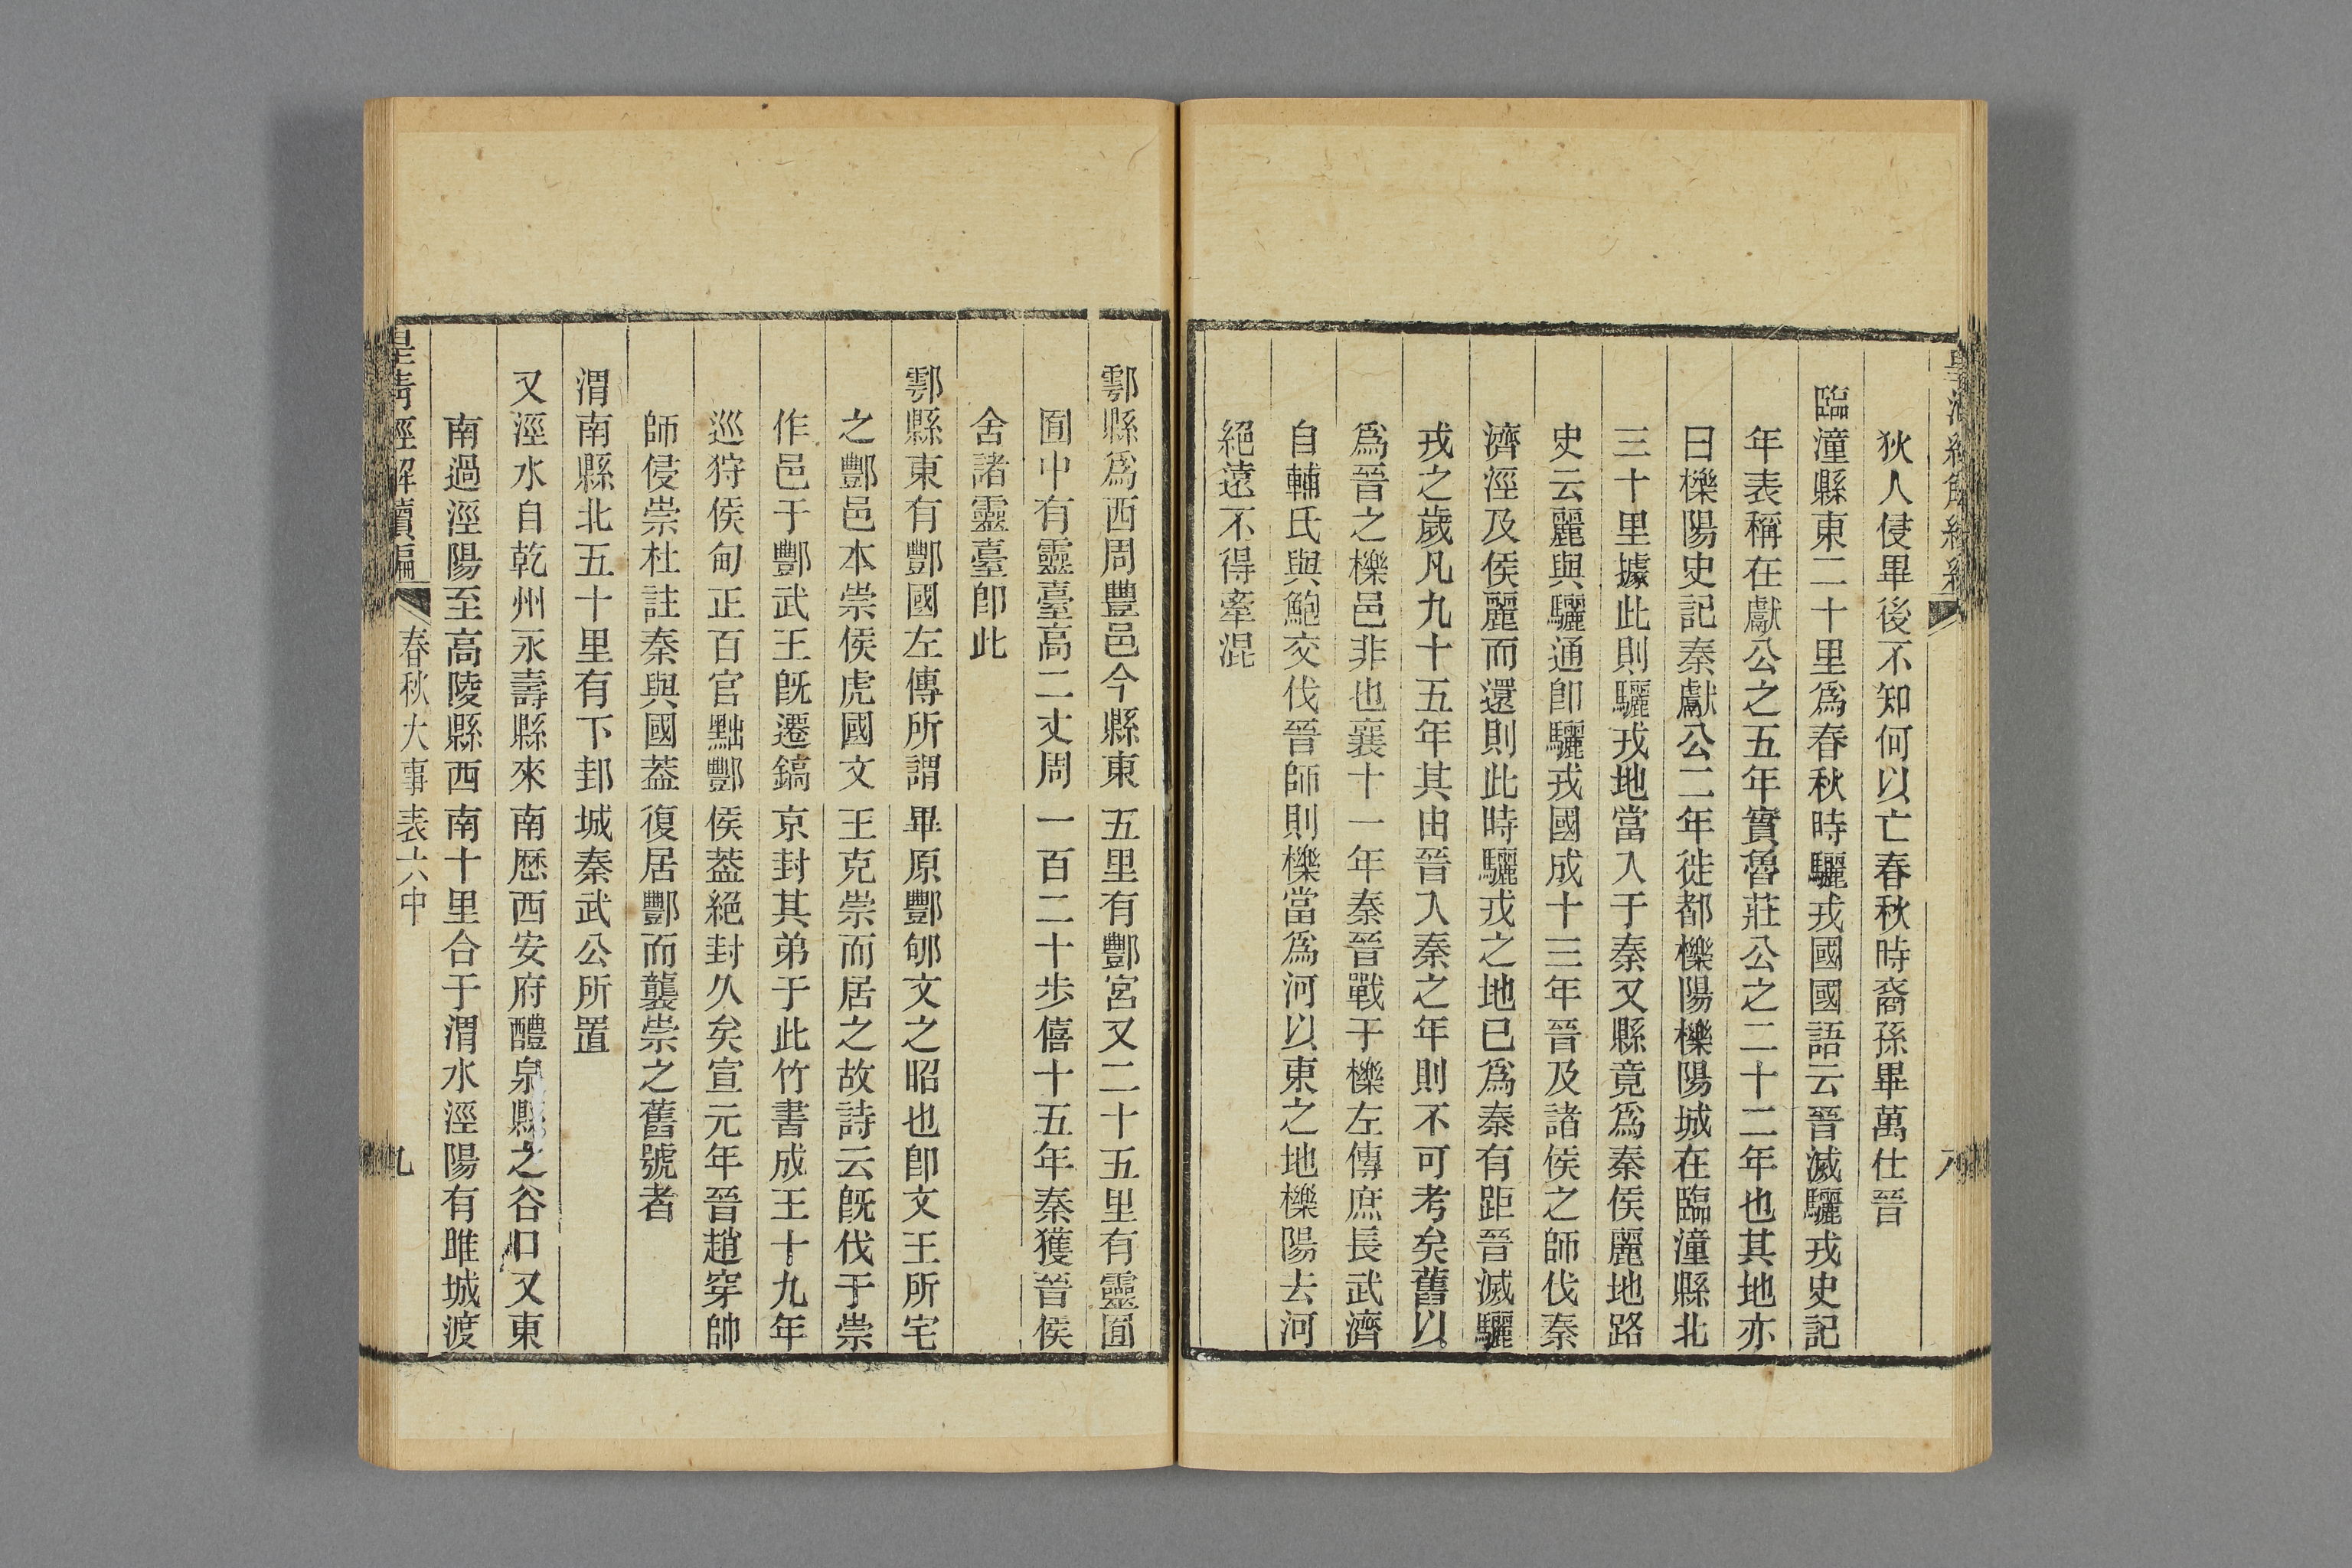 狄人侵畢後不知何以亡春秋時裔孫畢萬仕晉
臨潼縣東二十里爲春秋時驪戎國國語云晉滅驪戎史記
年表稱在獻公之五年實魯莊公之二十二年也其地亦
曰櫟陽史記秦獻公二年徙都櫟陽櫟陽城在臨潼縣北
三十里據此則驪戎地當入于秦又縣竟爲秦侯麗地路
史云麗與驪通卽驪戎國成十三年晉及諸侯之師伐秦
濟涇及侯麗而還則此時驪戎之地已爲秦有距晉滅驪
戎之歲凡九十五年其由晉入秦之年則不可考矣舊以
爲晉之櫟邑非也襄十一年秦晉戰于櫟左傳庶長武濟
自輔氏與鮑交伐晉師則櫟當爲河以東之地櫟陽去河
絕遠不得牽混
鄠縣爲西周豐邑今縣東五里有酆宮又二十五里有靈囿
囿中有靈臺高二丈周一百二十步僖十五年秦獲晉侯
舍諸靈臺卽此
鄠縣東有酆國左傳所謂畢原酆郇文之昭也卽文王所宅
之酆邑本崇侯虎國文王克崇而居之故詩云旣伐于崇
作邑于酆武王旣遷鎬京封其弟于此竹書成王十九年
巡狩侯甸正百官黜酆侯葢絕封久矣宣元年晉趙穿帥
師侵崇杜註秦與國葢復居酆而襲崇之舊號者
渭南縣北五十里有下邽城秦武公所置
又涇水自乾州永壽縣來南歷西安府醴泉縣之谷口又東
南過涇陽至高陵縣西南十里合于渭水涇陽有雎城渡
皇淸經解續編 春秋大事表六中 九